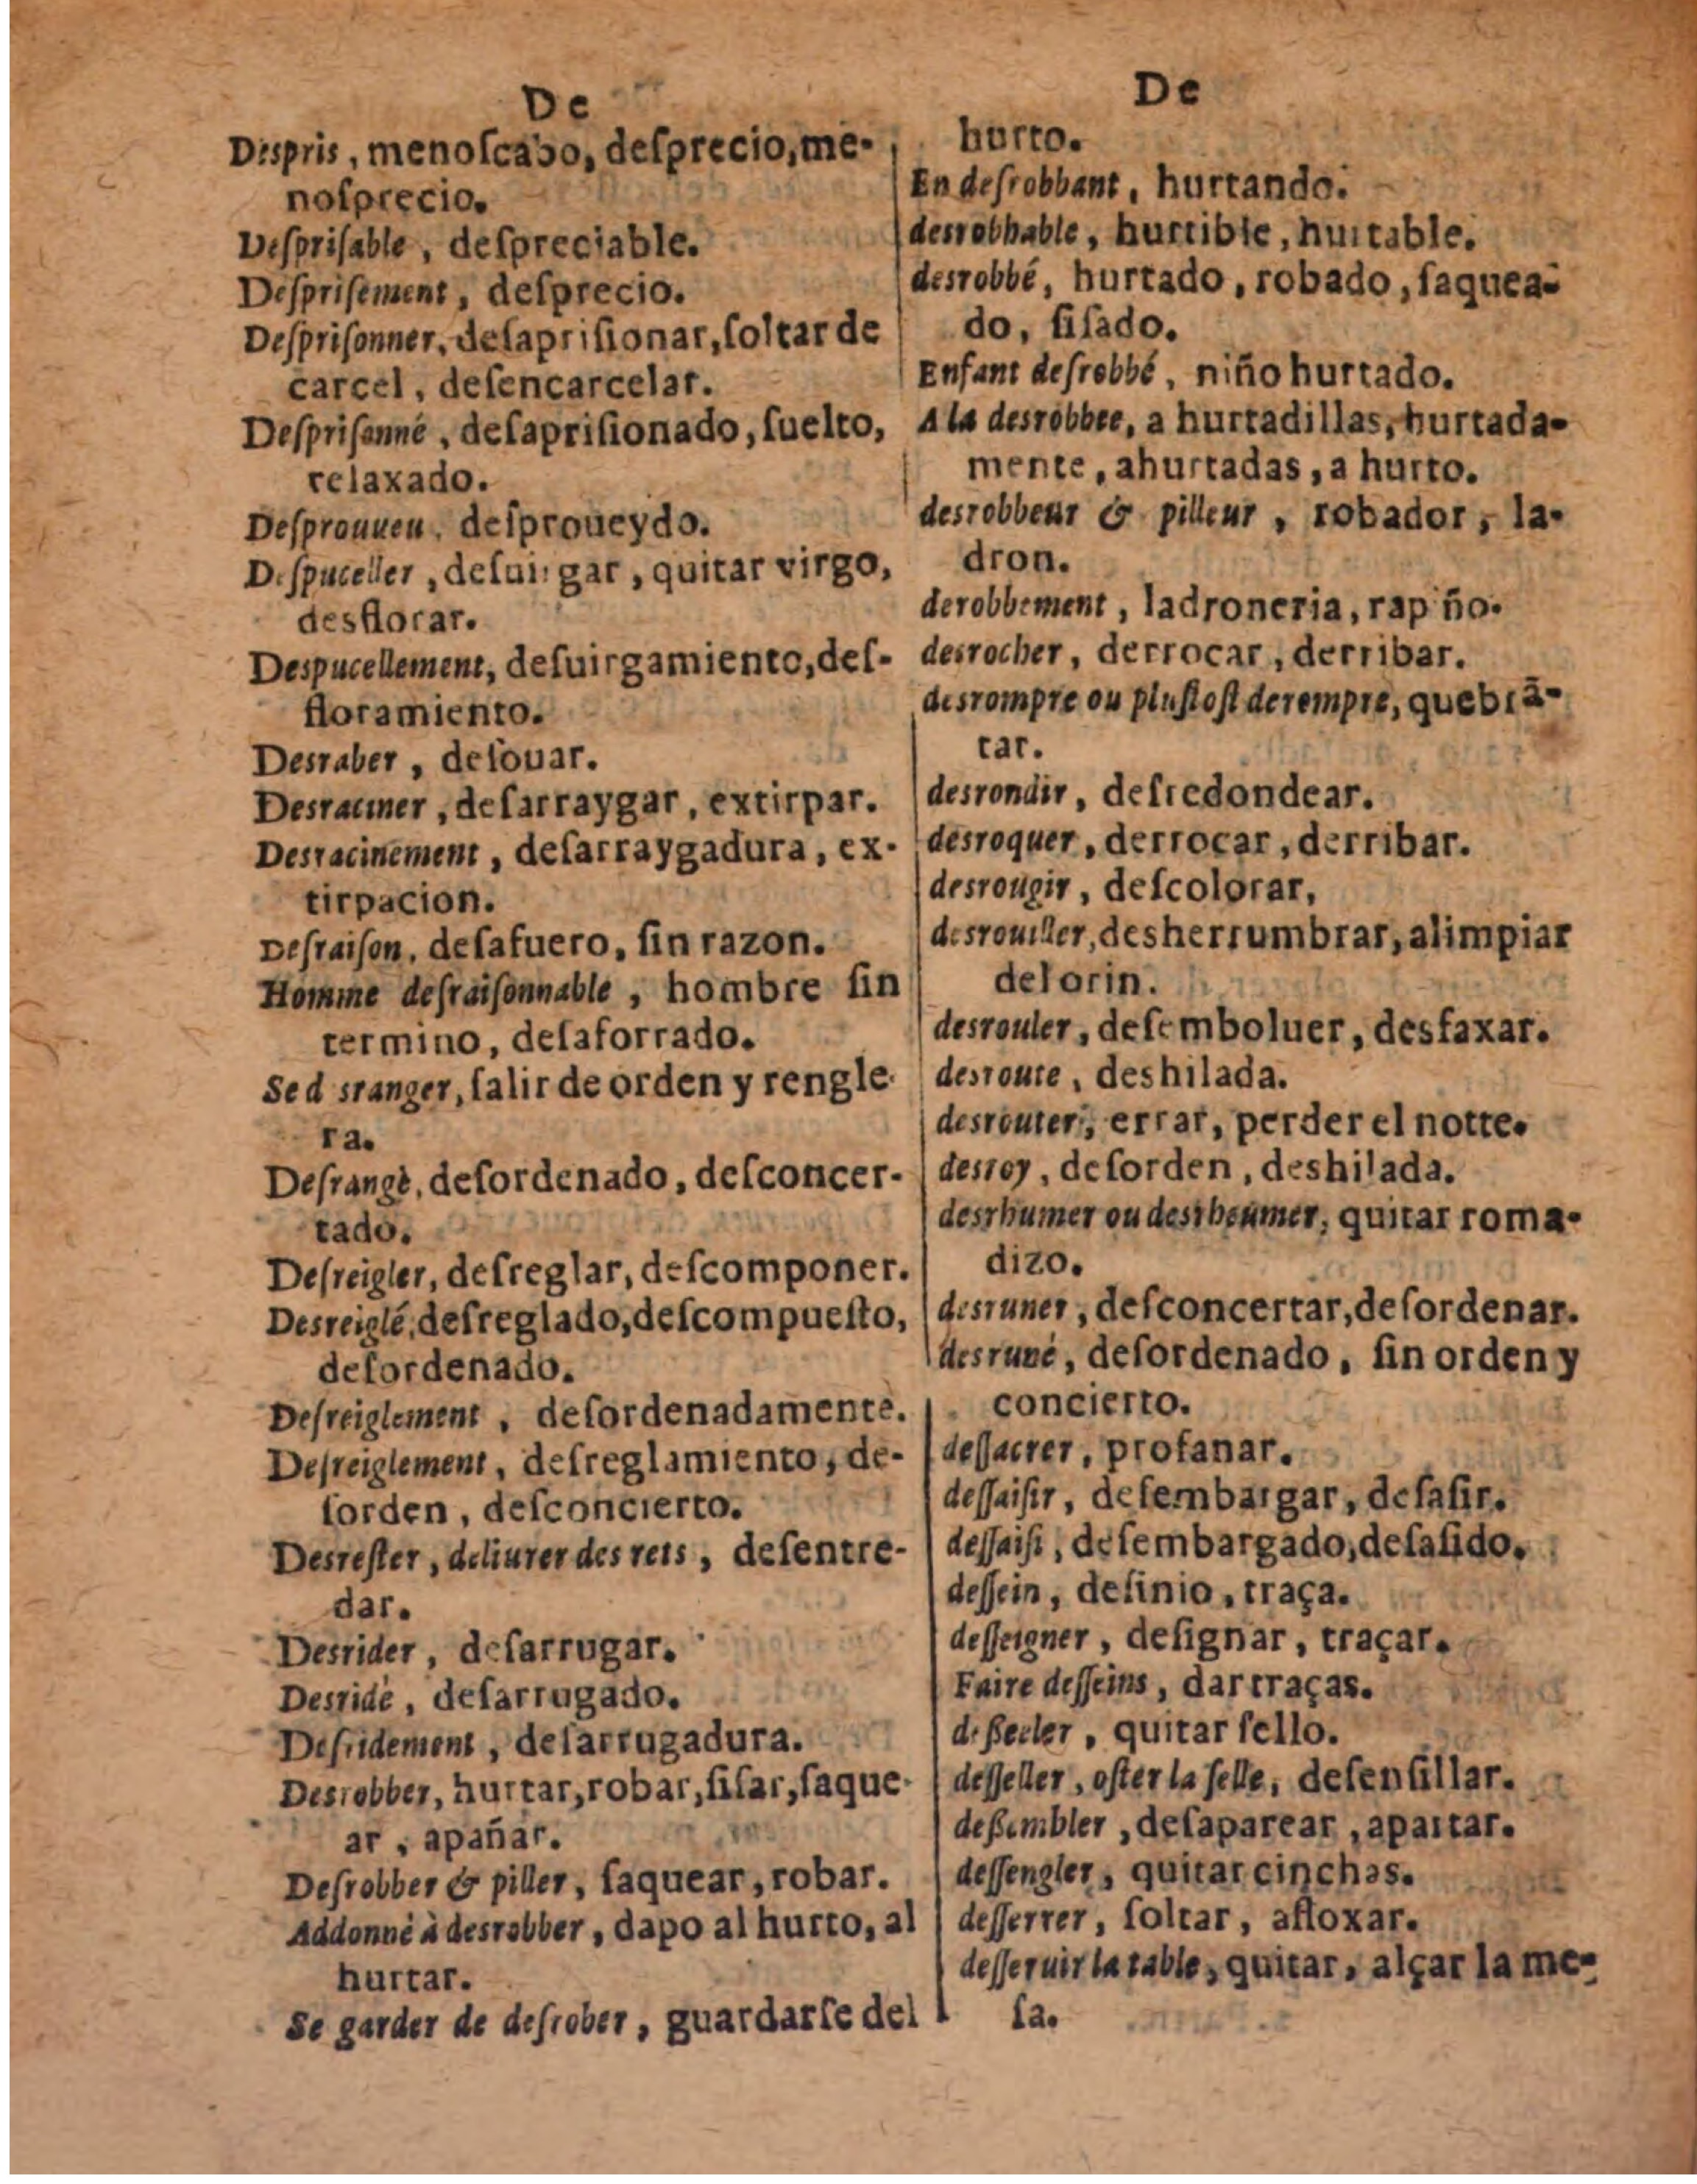 De
Despris, menoſcabo, deſprecio, me-
noſprecio.
Deſpriſable, deſpreciable.
Deſpriſement, deſprecio.
Deſpriſonner, deſapriſionar, ſoltar de
carcel, deſencarcelar.
Deſpriſonné, deſapriſionado, ſuelto,
relaxado.
Deſprouueu, deſproueydo.
Deſpuceller, deſuirgar, quitar virgo,
desflorar.
Despucellement, deſuirgamiento, deſ-
floramiento.
Desraber, deſouar.
Desraciner, deſarraygar, extirpar.
Desracinement, deſarraygadura, ex-
tirpacion.
Deſraiſon, deſafuero, ſin razon.
Homme deſraiſonnable, hombre ſin
termino, deſaforrado.
Se d sranger, ſalir de orden y rengle-
ra.
Deſrangè, deſordenado, deſconcer-
tado.
Deſreigler, deſreglar, deſcomponer.
Desreiglé, deſreglado, deſcompueſto,
deſordenado.
Deſreiglement, deſordenadamente.
Deſreiglement, deſreglamiento, de-
ſorden, deſconcierto.
Desreſter, deliurer des rets, deſentre-
dar.
Desrider, deſarrugar.
Desridè, deſarrugado.
Deſridement, deſarrugadura.
Desrobber, hurtar, robar, ſiſar, ſaque-
ar, apañar.
Deſrobber & piller, ſaquear, robar.
Addonnè à desrobber, dapo al hurto, al
hurtar.
Se garder de deſrober, guardarſe del
De
hurto.
En deſrobbant, hurtando.
desrobbable, hurtible, hurtable.
desrobbé, hurtado, robado, ſaquea-
do, ſiſado.
Enfant deſrobbé, niño hurtado.
A la desrobbee, a hurtadillas, hurtada-
mente, ahurtadas, a hurto.
desrobbeur & pilleur, robador, la-
dron.
derobbement, ladroneria, rapiño.
desrocher, derrocar, derribar.
desrompre ou pluſtoſt derompre, quebrã-
tar.
desrondir, deſredondear.
desroquer, derrocar, derribar.
desrougir, deſcolorar,
desrouiller, desherrumbrar, alimpiar
del orin.
desrouler, deſemboluer, desfaxar.
desroute, deshilada.
desrouter, errar, perder el notte.
desroy, deſorden, deshilada.
desrhumer ou desrheumer, quitar roma-
dizo.
desruner, deſconcertar, deſordenar.
desruné, deſordenado, ſin orden y
concierto.
deſſacrer, profanar.
deſſaiſir, deſembargar, deſaſir.
deſſaiſi, deſembargado, deſaſido.
deſſein, deſinio, traça.
deſſeigner, deſignar, traçar.
Faire deſſeins, dar traças.
deßeeler, quitar ſello.
deſſeller, oſter la ſelle, deſenſillar.
deßembler, deſaparear, apartar.
deſſengler, quitar cinchas.
deſſerrer, ſoltar, afloxar.
deſſeruir la table, quitar, alçar la me-
ſa.